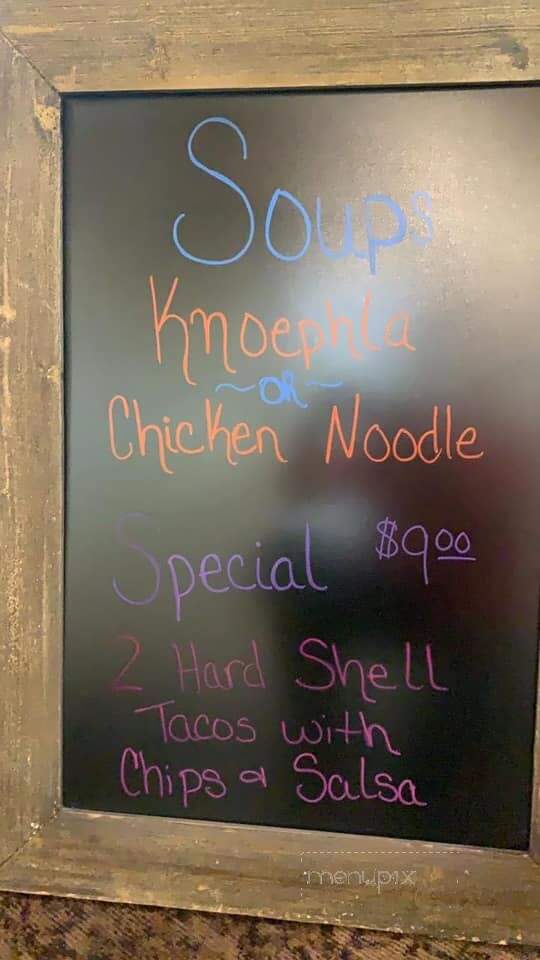 Soups
Knoephla
~OR~
Chicken Noodle
Special $9.00
2 Hard Shell
Tacos with
Chips & Salsa
menupix